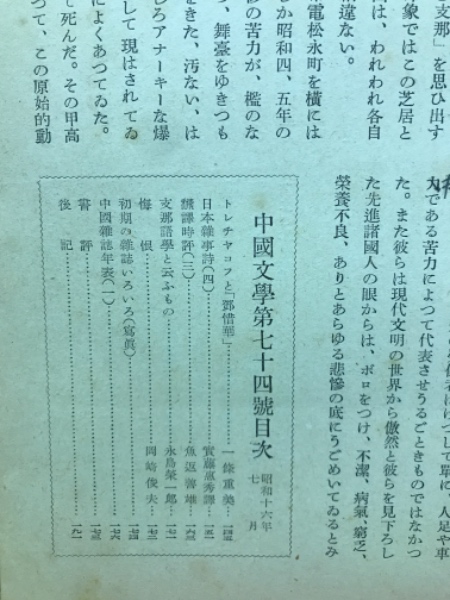 支那」を思ひ出す
象ではこの芝居と
は、われわれ各自
違ない。
電松永町を横には
か昭和四、五年の
の苦力が、檻のな
、舞臺をゆきつも
をきた、汚ない、は
しろアナーキーな爆
して現はされてゐ
によくあつてゐた。
て死んだ。その甲高
つて、この原始的動
である苦力によつて代表させうるごときものではなかつ
た。また彼らは現代文明の世界から傲然と彼らを見下ろし
た先進諸國人の眼からは、ボロをつけ、不潔、病氣、窮乏、
榮養不良、ありとあらゆる悲慘の底にうごめいてゐるとみ
中國文學第七十四號目次
昭和十六年
七月
トレチヤコフと「鄧惜華」……一條重美…一四五
日本雜事詩(四)……實藤惠秀譯…一五一
飜譯時評(三)……魚返善雄…一六三
支那語學と云ふもの……永島榮一郎…一七一
悔恨……岡崎俊夫…一七三
初期の雜誌いろいろ(寫眞)……一七四
中國雜誌年表(一)……一七六
書評……一七三
後記……一九一